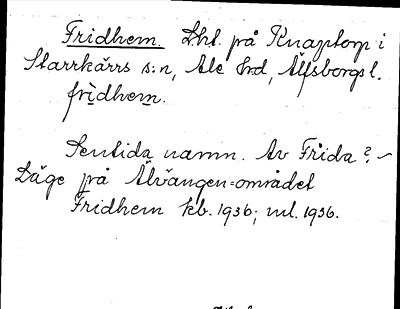 Fridhem. Lht. på Knaptorp i
Starrkärrs s:n, Ale hrd, Älfsborgs l.
frìdhem.
Sentida namn. Av Frida? –
Läge på Älvängen=området
Fridhem kb. 1936; ml. 1936.